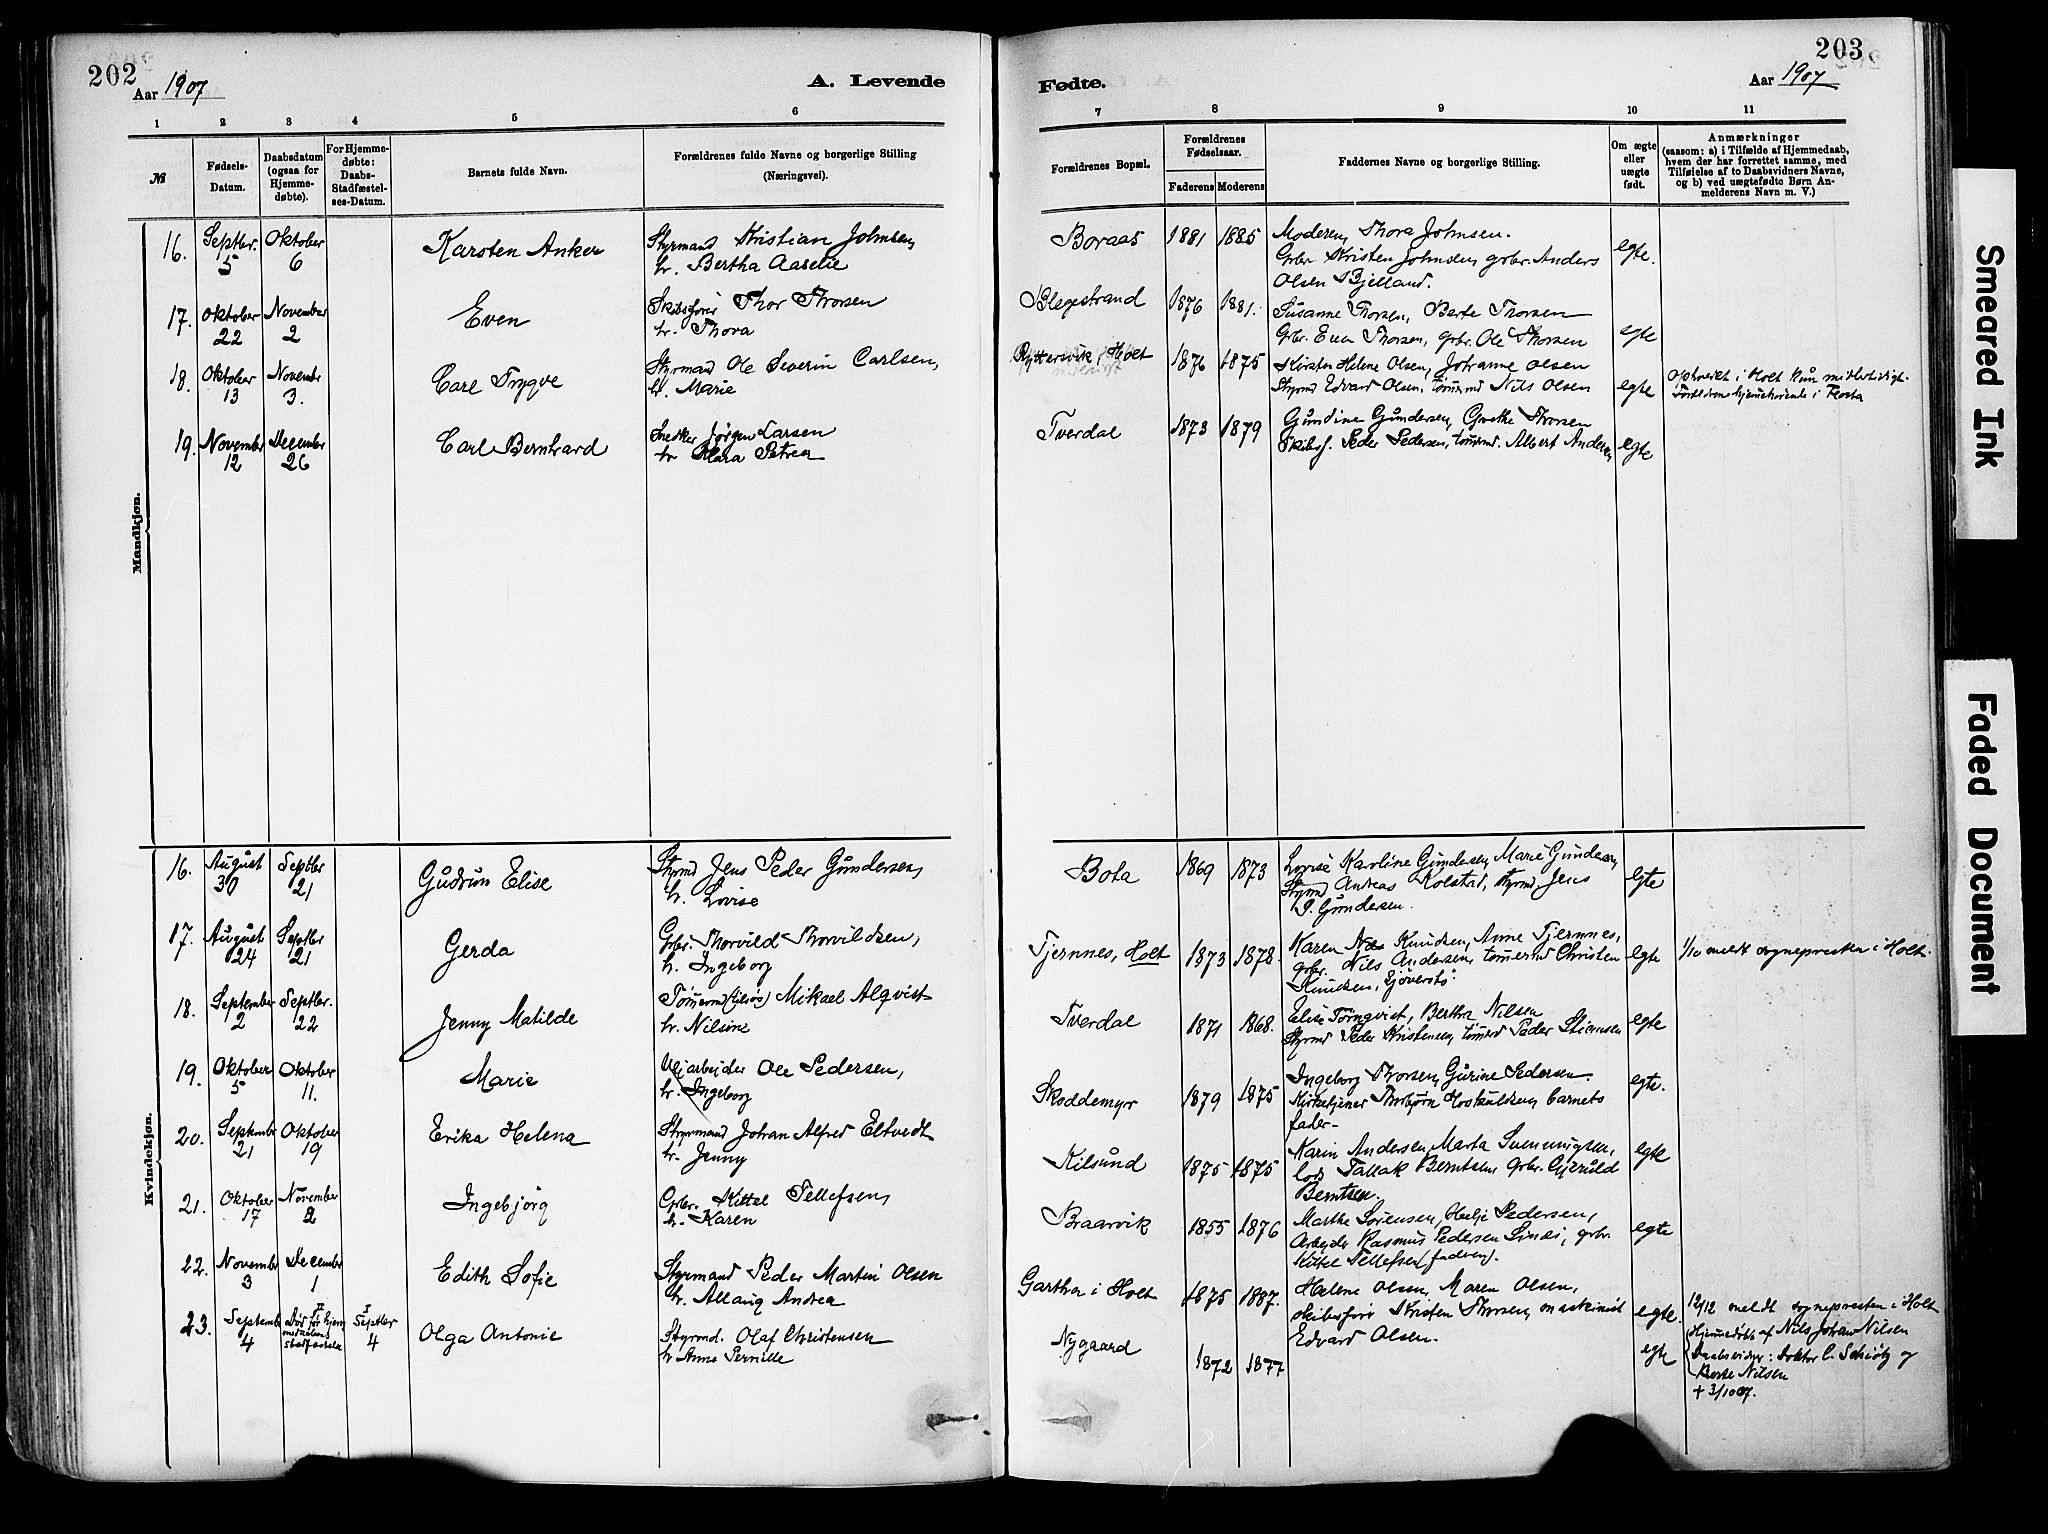 202
Aar 1907
A. Levende
1 2 3 4 5 6
№
Fødsels-
Datum.
Daabsdatum
(ogsaa for
Hjemme-
døbte).
For Hjemme-
døbte:
Daabs-
Stadfæstel-
ses-Datum.
Barnets fulde Navn.
Forældrenes fulde Navne og borgerlige Stilling
(Næringsvei).
Mandkjøn.
16. Septbr. 5 Oktober 6 Karsten Anker Styrmand Kristian Johnsen,
h. Bertha Aarelie
17. Oktober 22 November 2 Even Skibsfører Thor Thorsen
h. Thora
18. Oktober 13 Novembr 3. Carl Trygve Styrmand Ole Severin Carlsen,
h. Marie
19. November 12 December 26 Carl Bernhard Snedker Jørgen Larsen
h. Klara Petrea
Kvindekjøn.
16. August 30 Septbr 21 Gudrun Elise Styrmd Jens Peder Gundersen,
h. Lovise
17. August 24 Septbr 21 Gerda Grbr. Thorvild Thorvildsen,
h. Ingeborg
18. September 2 Septbr. 22 Jenny Matilde Tømrmd Mikael Alqvist
h. Nilsine
19. Oktober 5 Oktober 11. Marie Veiarbejder Ole Pedersen,
h. Ingeborg
20. Septembr 21 Oktober 19 Erika Helena Styrmand Johan Alfred Eltvedt
h. Jenny
21. Oktober 17 November 2 Ingebjörg Grbr. Kittel Tellefsen,
h. Karen
22. November 3 December 1 Edith Sofie Styrmand Peder Martin Olsen
h. Allaug Andrea
23. Septembr 4 Død før Septbr 4 Olga Antonie Styrmd. Olaf Christensen
h Anne Pernille
203
Fødte.
Aar 1907
7 8 9 10 11
Forældrenes Bopæl.
Forældrenes
Fødselsaar.
Faderens Moderens
Faddernes Navne og borgerlige Stilling.
Om ægte
eller
uægte
født.
Anmærkninger
(saasom: a) i Tilfælde af Hjemmedaab,
hvem der har forrettet samme, med
Tilføielse af to Daabsvidners Navne,
og b) ved uægtefødte Børn An-
melderens Navn m. V.)
Boraas 1881 1885 Moderen, Thora Johnsen. egte.
Grbr Kristen Johnsen, grbr. Anders
Olsen Bjelland.
Blegestrand 1876 1881. Susanne Thorsen, Berte Thorsen
Grbr. Even Thorsen, grbr. Ole Thorsen egte
Ryttersvik, Holt 1876 1875 Kirsten Helene Olsen, Johanne Olsen
Styrmd Edvard Olsen, tømrmd Nils Olsen egte Opholdt i Holt kun midlertidigt.
Forældrene hjemhørende i Flosta
Tverdal 1873 1879 Gundine Gundersen, Grethe Thorsen
Skibsf. Peder Pedersen, tømrmd. Albert Andersen egte
Bota 1869 1873 Lovise Karoline Gundersen, Marie Gundersen,
Styrmd Andreas Kolstad, styrmd Jens egte
P. Gundersen.
Tjernnes, Holt 1873 1878. Karen Knudsen, Anne Tjernnes,
grbr. Nils Andersen, tømermd Christen egte 1/10 meldt sognepresten i Holt.
Knudsen,
Tverdal 1871 1868. Elise Törnqvist, Bertha Nilsen
Styrmd Peder Kristensen, tømrmd Peder Stiansen egte
Skoddemyr 1879 1875 Ingeborg Thorsen, Gurine Pedersen. egte.
Kirketjener Thorbjörn Hoskuldsen, barnets
fader-
Kilsund 1875 1875 Karin Andersen, Marta Svenningsen, egte
lods Tallak Berntsen, grbr. Gjeruld
Berntsen.
Braarvik 1855 1876 Marthe Sørensen, Helje Pedersen,
Arbejder Rasmus Pedersen grbr. egte
Kittel Tellefsen (faderen).
Gartha i Holt 1875 1887. Helene Olsen, Maren Olsen,
skibsfører Kristen Thorsen, maskinist egte. 12/12 meldt sognepresten i Holt
Edvard Olsen.
Nygaard 1872 1877 egte Hjemmedøbt af Nils Johan Nilsen
Daabsvidner: Doktor C. Schiötz og
Berte Nilsen
+ 3/10 07.
Smeared Ink
Faded Document